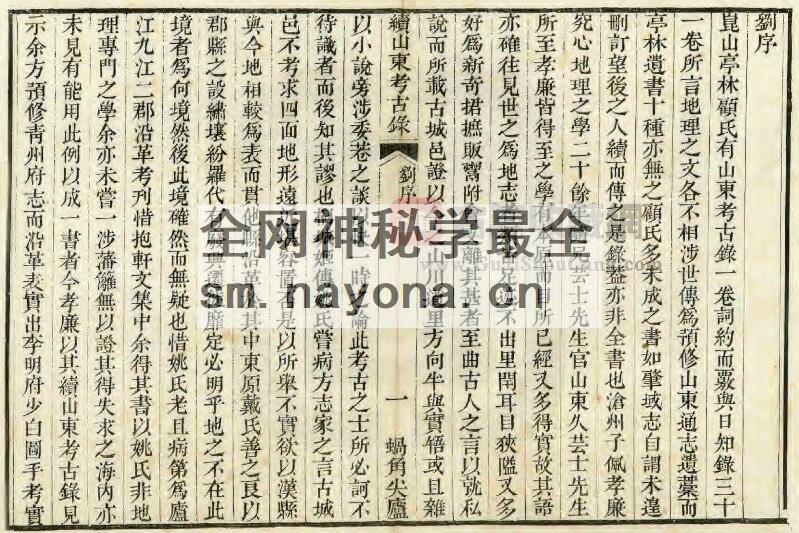 劉序
崑山亭林顧氏有山東考古錄一卷詞約而覈與日知錄三十
一卷所言地理之文各不相涉世傳爲預修山東通志遺藁而
亭林遺書十種亦無之顧氏多未成之書如肇域志自謂未遑
刪訂望後之人續而傳之是錄葢亦非全書也滄州子佩孝廉
究心地理之學二十餘年 先芸士先生官山東久芸士先生
所至孝廉皆得至之學有本原而目所已經又多得實故其語
亦確往見世之爲地志者 足迹不出里閈耳目狹隘又多
好爲新奇捃摭販鬻附 離其甚者至曲古人之言以就私
說而所載古城邑證以 山川 里方向半與實牾或且雜
以小說旁涉委巷之談以 一時之論此考古之士所必訶不
待識者而後知其謬也 姚傳 氏嘗病方志家之言古城
邑不考求四面地形遠近 容置不是以所舉不實欲以漢縣
與今地相較爲表而貫他縣沿革 其中東原戴氏善之良以
郡縣之設繡壤紛羅代有廢興 靡定必明乎地之不在此
境者爲何境然後此境確然而無疑也惜姚氏老且病第爲廬
江九江二郡沿革考刊惜抱軒文集中余得其書以姚氏非地
理專門之學余亦未嘗 涉藩籬無以證其得失求之海內亦
未見有能用此例以成一書者今孝廉以其續山東考古錄見
示余方預修靑州府志而沿革表實出李明府少白圖手考實
續山東考古錄
劉序
一
蝸角尖廬
全网神秘学最全
sm.nayona.cn